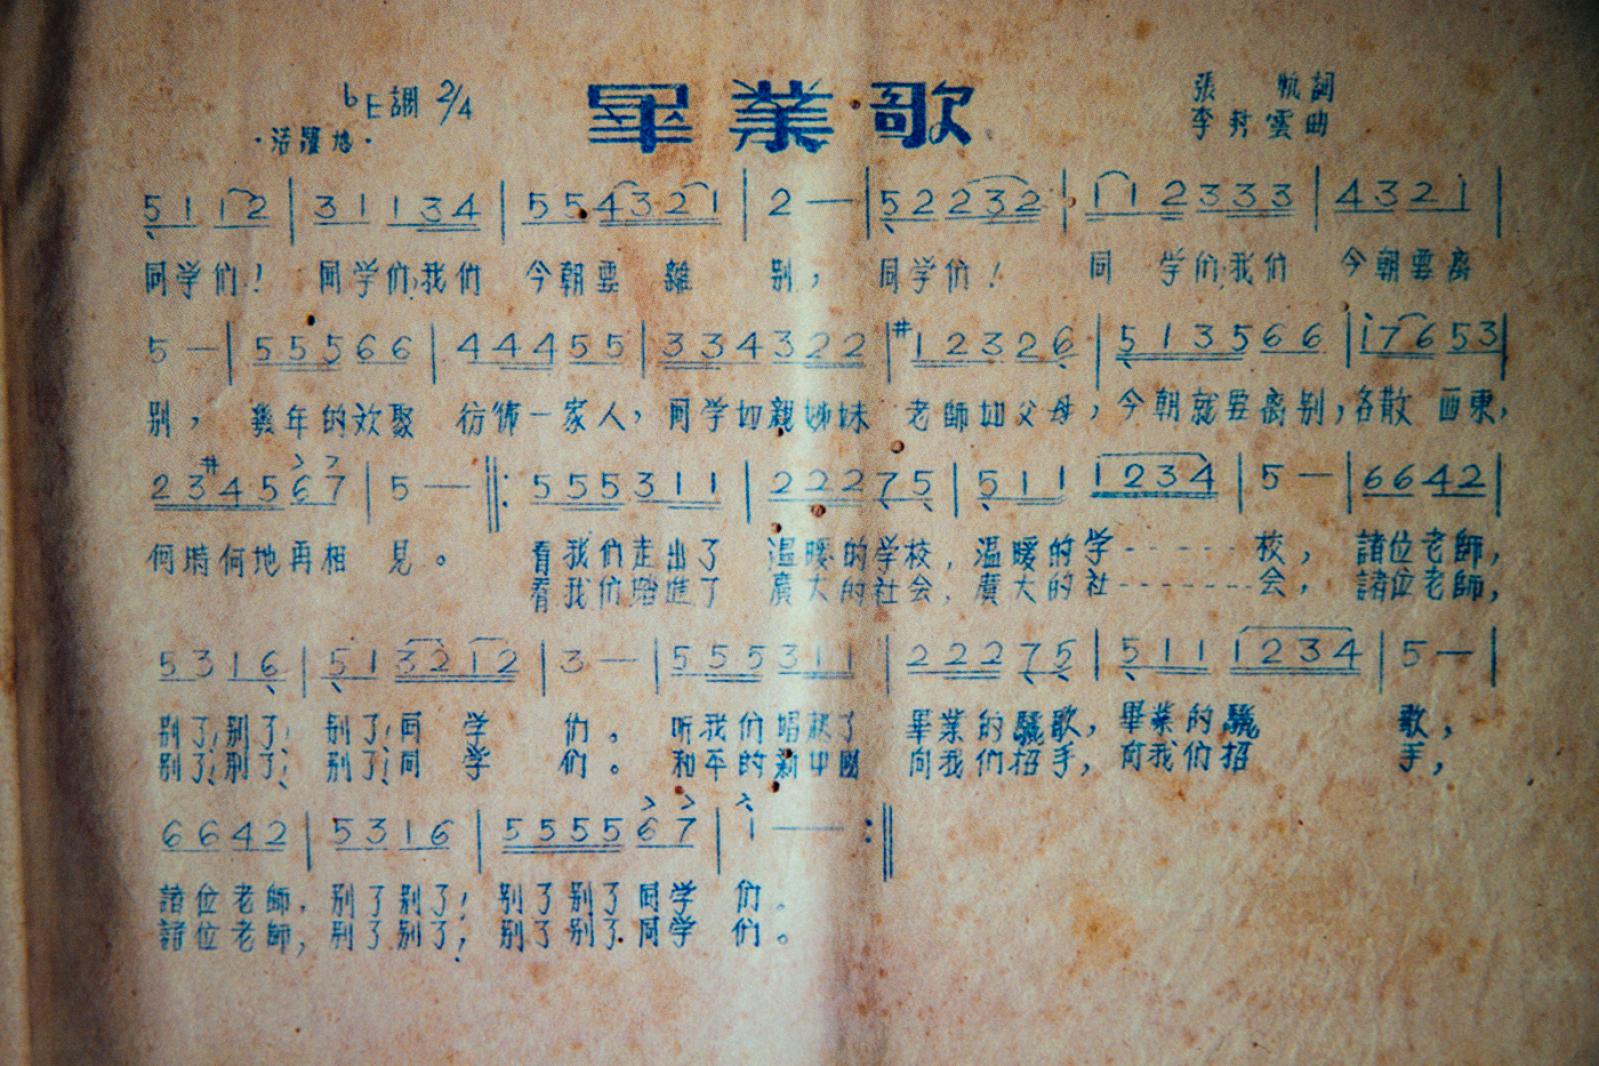 畢業歌
ᵇE調 2/4
張 帆詞
李 封雲曲
5 1 1 2 | 3 1 1 3 4 | 5 5 4 3 2 1 | 2 — | 5 2 2 3 2 | 1 1 2 3 3 3 | 4 3 2 1 |
同学们! 同学们,我们 今朝要 離 别, 同学们! 同 学们,我们 今朝要离
5 — | 5 5 5 6 6 | 4 4 4 5 5 | 3 3 4 3 2 2 | #1 2 3 2 6 | 5 1 3 5 6 6 | i 7 6 5 3 |
别, 幾年的欢聚 彷彿一家人, 同学如親姊妹 老師如父母, 今朝就要离别,各散 西東,
2 3 #4 5 6 7 | 5 — ‖: 5 5 5 3 1 1 | 2 2 2 7 5 | 5 1 1 1 2 3 4 | 5 — | 6 6 4 2 |
何時何地再相 見。 看我们走出了 温暖的学校, 温暖的学------校, 諸位老師,
看我们踏進了 廣大的社会, 廣大的社-------会, 諸位老師,
5 3 1 6 | 5 1 3 2 1 2 | 3 — | 5 5 5 3 1 1 | 2 2 2 7 5 | 5 1 1 1 2 3 4 | 5 — |
别了!别了! 别了!同 学 们。 听我们唱起了 畢業的驪歌, 畢業的驪 歌,
别了!别了! 别了!同 学 们。 和平的新中國 向我们招手, 向我们招 手,
6 6 4 2 | 5 3 1 6 | 5 5 5 5 6 7 | i — :‖
諸位老師, 别了别了! 别了别了同学 们。
諸位老師, 别了别了, 别了别了同学 们。